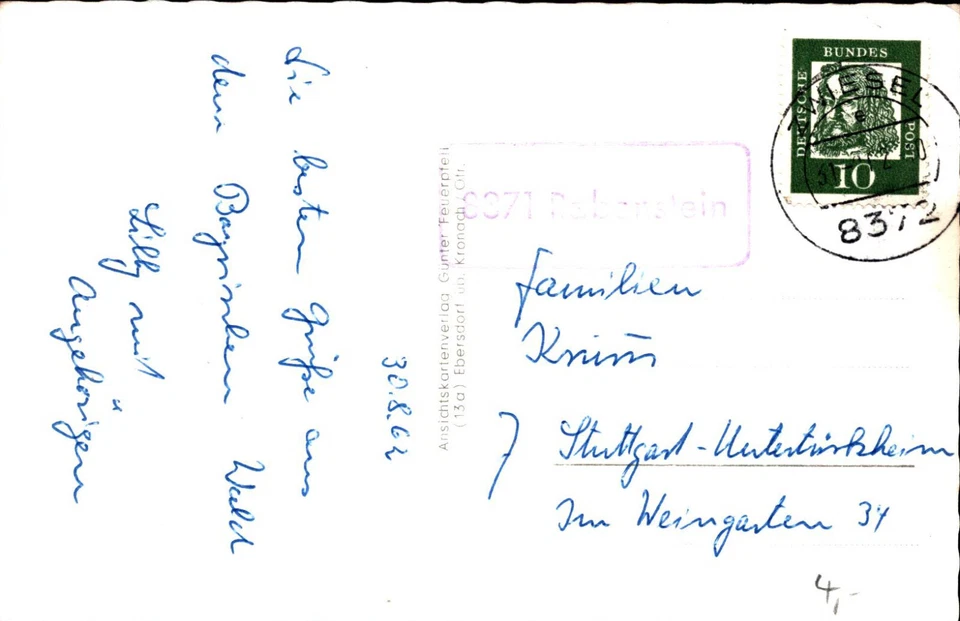 30.8.62
Die besten Grüße aus
dem Bayrischen Wald
Lilly mit
Angehörigen
Ansichtskartenverlag Günter Feuerpfeil
(13a) Ebersdorf üb. Kronach/Ofr.
8371 Rabenstein
DEUTSCHE
BUNDES
POST
10
ZWIESEL
e
8372
Familien
Stuttgart-Untertürkheim
Im Weingarten 34
4,-